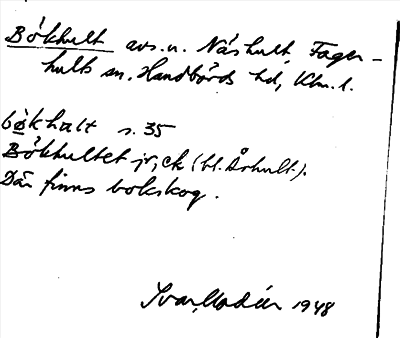 Bökhult avs. u. Näshult, Fager-
hults sn. Handbörds hd, Klm. l.
bökhalt s. 35
Bökhultet jr, ek (bl. Århult.).
Där finns bokskog.
Ivar Modéer 1948